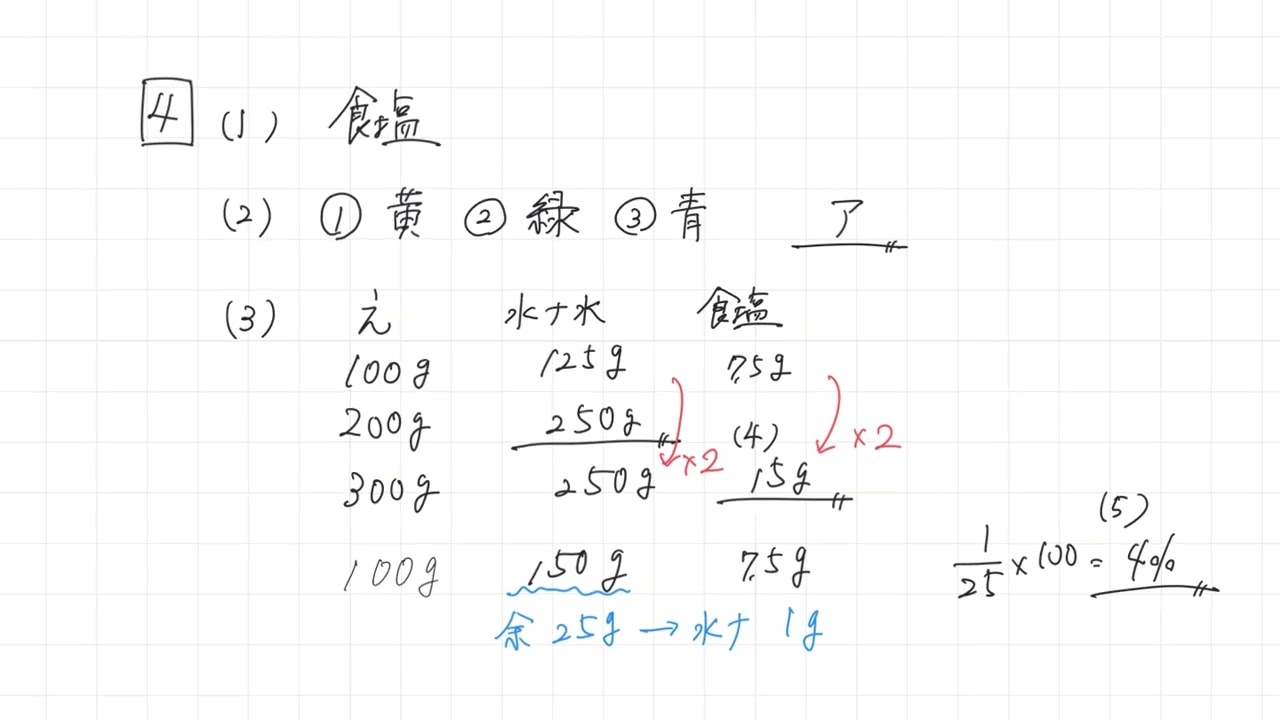 4 (1) 食塩
(2) ① 黄 ② 緑 ③ 青 ア
(3) 元 水+水 食塩
100g 125g 7.5g
200g 250g (4) ×2
300g 250g ×2 15g
(5)
100g 150g 7.5g 1/25 × 100 = 4%
余 25g → 水+ 1g